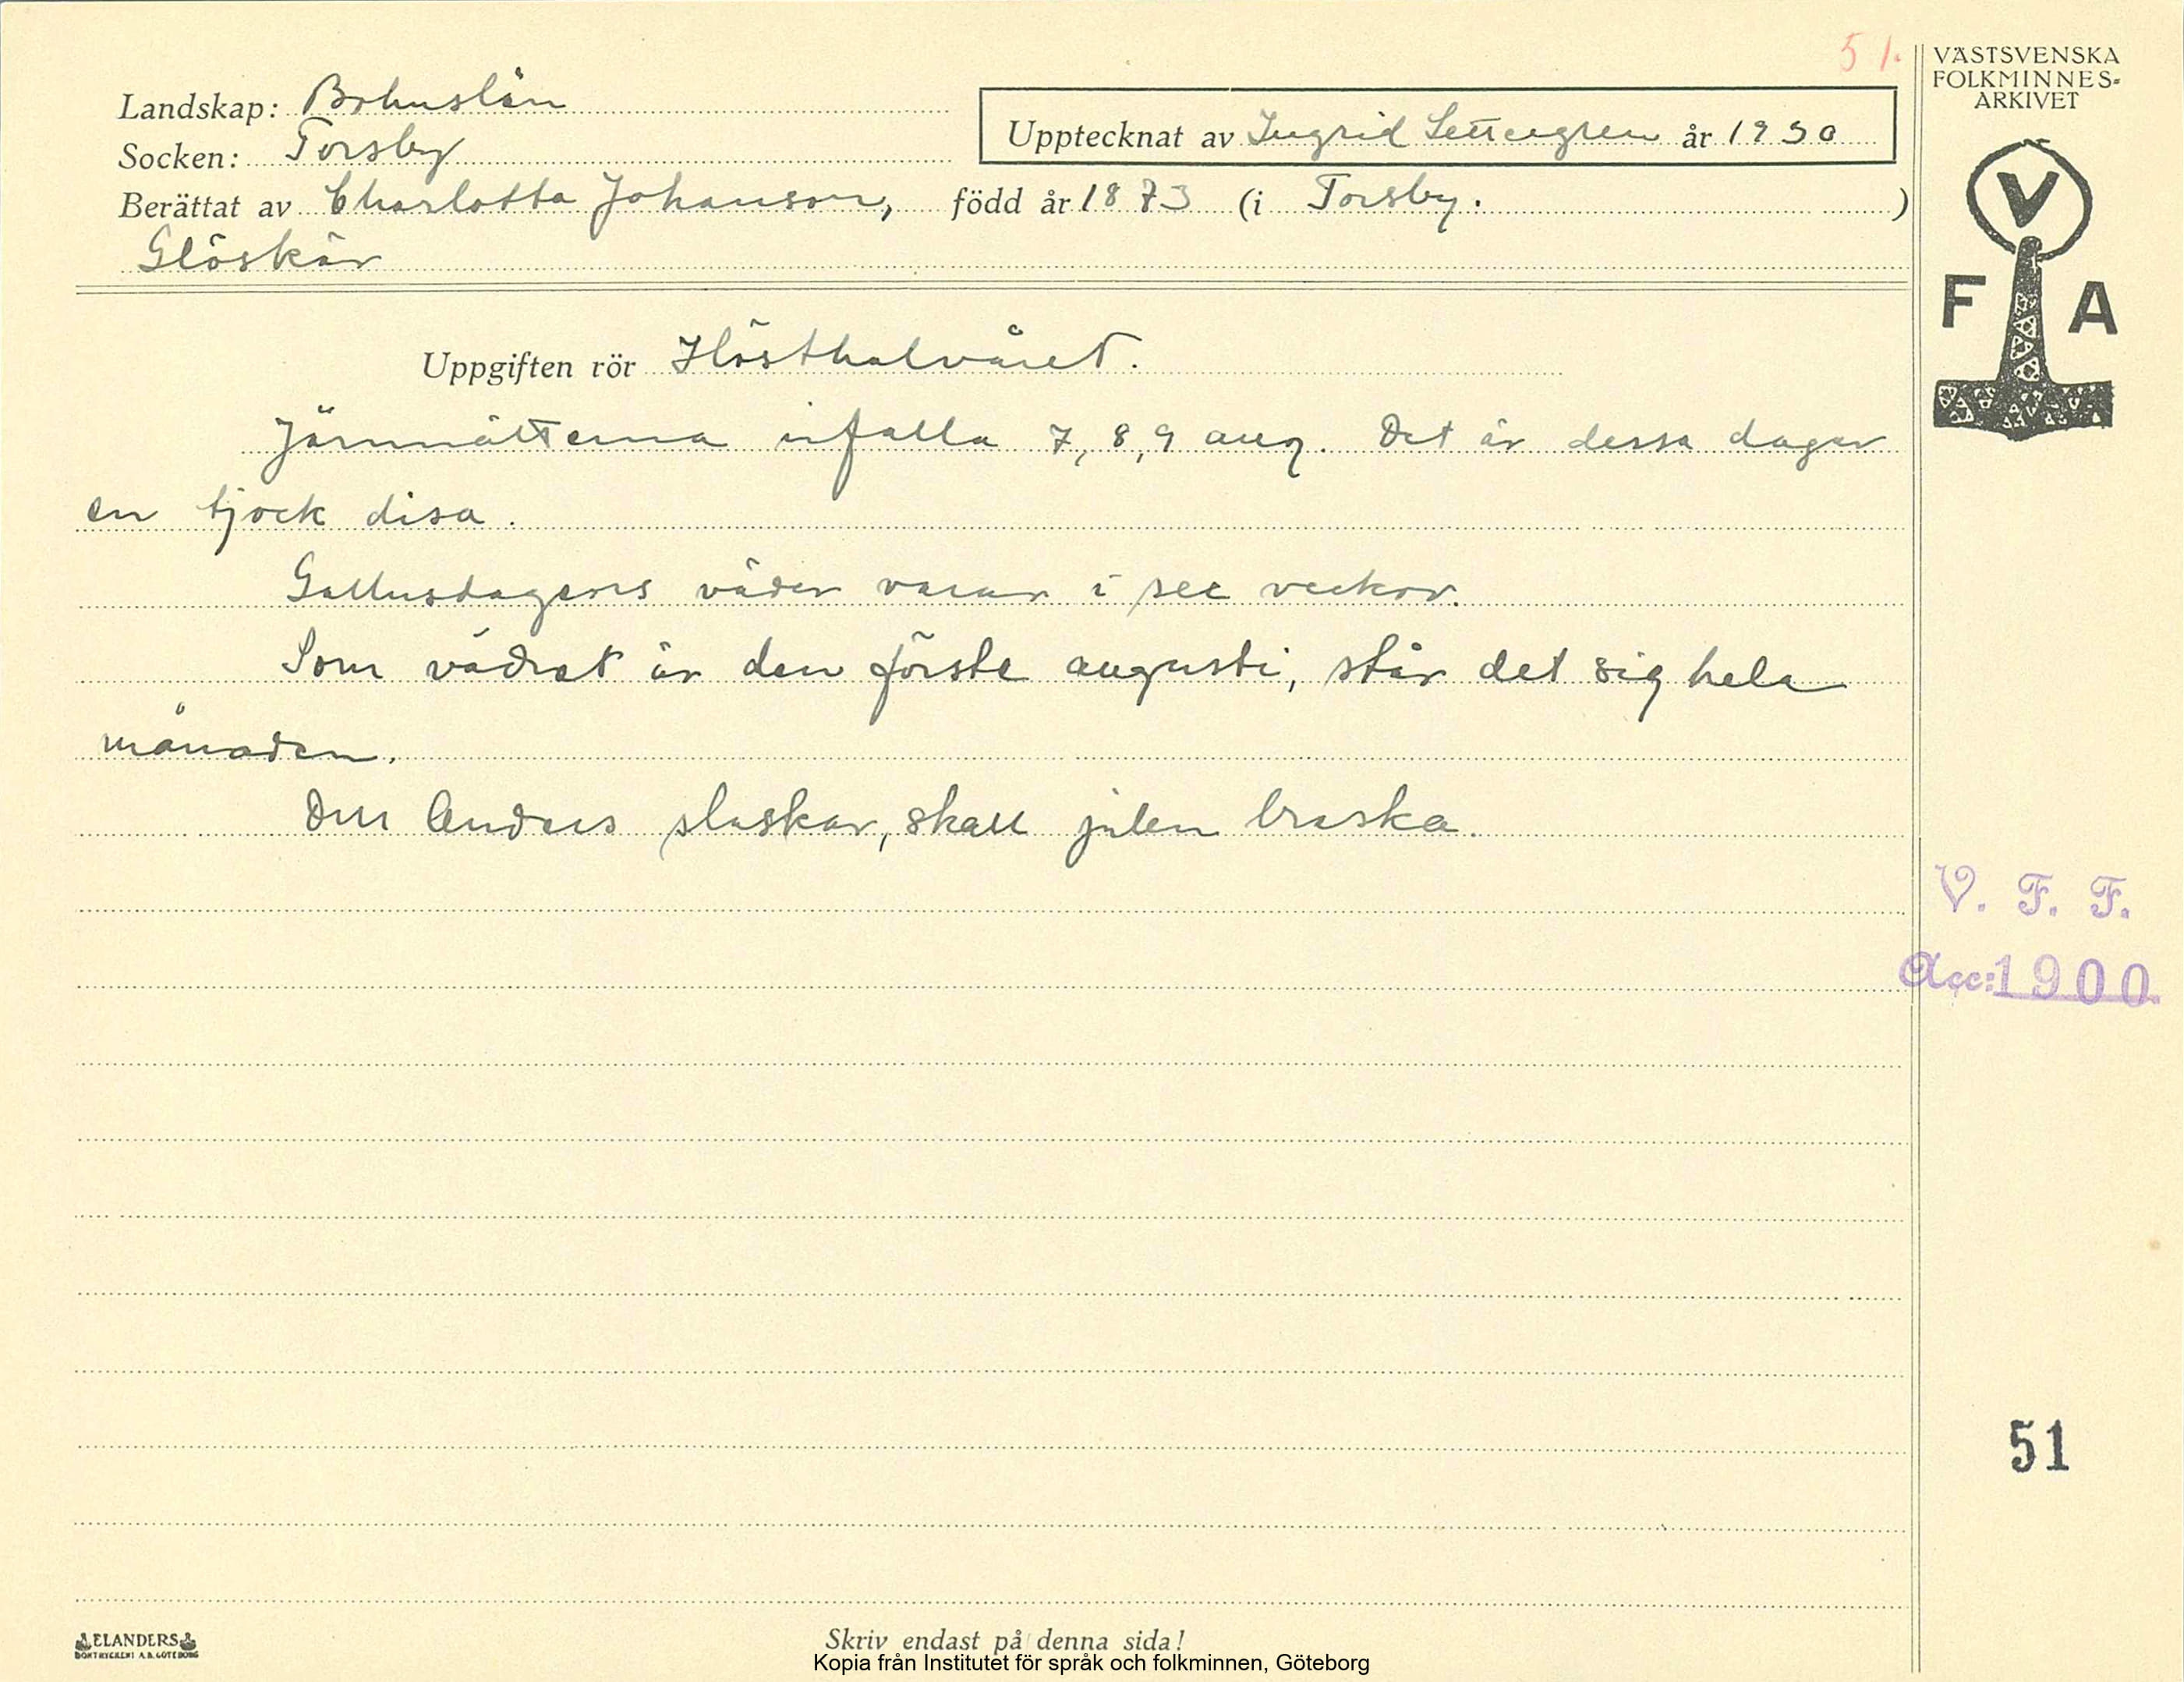 51.
Landskap: Bohuslän
Socken: Torsby
Upptecknat av Ingrid Settergren år 1930
Berättat av Charlotta Johanson, född år 1873 (i Torsby. )
Glöskär
Uppgiften rör Hösthalvåret.
Järnnätterna infalla 7, 8, 9 aug. Det är dessa dagar
en tjock disa.
Gallusdagens väder varar i sex veckor.
Som vädret är den förste augusti, står det sig hela
månaden.
Om Anders slaskar, skall julen braska.
VÄSTSVENSKA
FOLKMINNES-
ARKIVET
V
F A
V. F. F.
Acc: 1900.
51
ELANDERS
BOKTRYCKERI A.B. GÖTEBORG
Skriv endast på denna sida!
Kopia från Institutet för språk och folkminnen, Göteborg